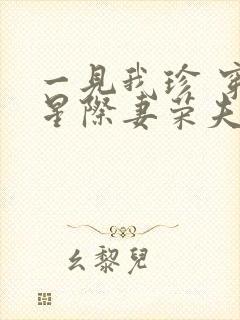 一見我珍 穿
星際妻荣夫
幺黎兒